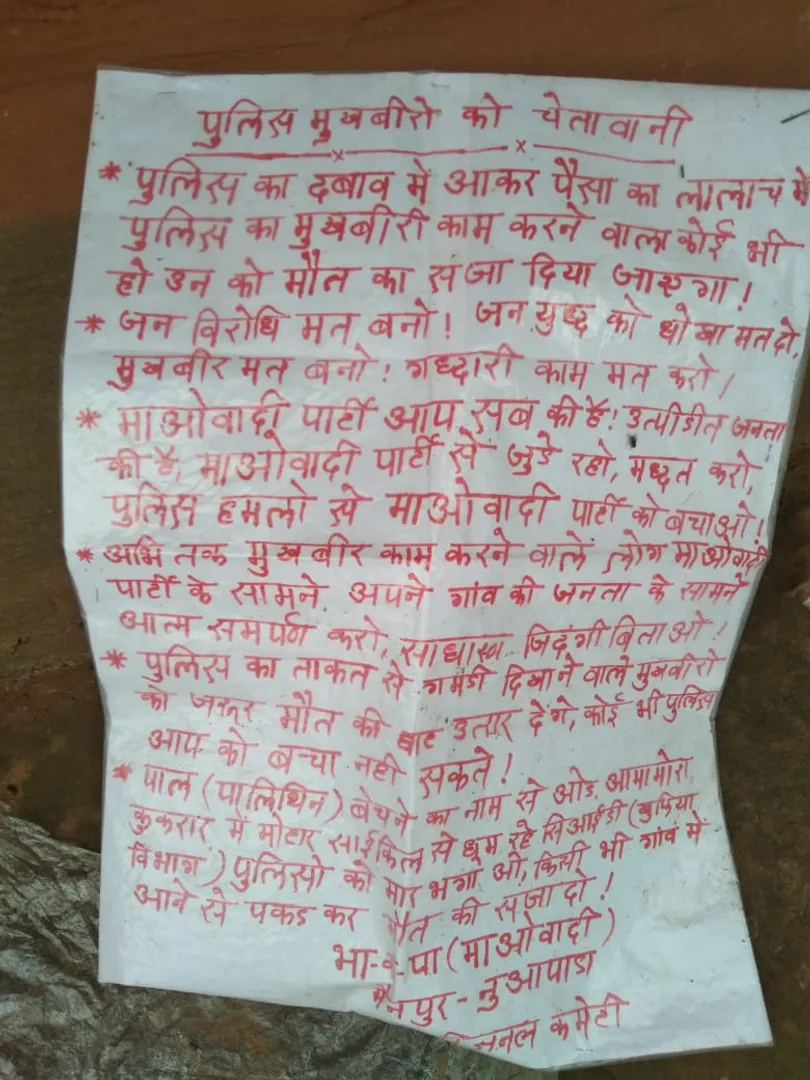 पुलिस मुखबीरो को चेतावानी
* पुलिस का दबाव में आकर पैसा का लालाच में
पुलिस का मुखबीरी काम करने वाला कोई भी
हो उन को मौत का सजा दिया जाएगा!
* जन विरोधि मत बनो! जन युध्द को धोखा मत दो,
मुखबीर मत बनो! गध्दारी काम मत करो!
* माओवादी पार्टी आप सब की है! उत्पीडीत जनता
की है, माओवादी पार्टी से जुडे रहो, मध्दत करो,
पुलिस हमलो से माओवादी पार्टी को बचाओ!
* अभि तक मुखबीर काम करने वाले लोग माओवादी
पार्टी के सामने. अपने गांव की जनता के सामने
आत्म समर्पण करो, साधारण जिदंगी बिताओ!
* पुलिस का ताकत से गमंडी दिखाने वाले मुखबीरो
को जरूर मौत की घाट उतार देंगे, कोई भी पुलिस
आप को बचा नही सकते!
* पाल (पालिथिन) बेचने का नाम से ओड, आमामोरा,
कुकरार में मोटार साईकिल से घूम रहे सिआईडी (खुफिया
विभाग) पुलिसो को मार भगा ओ, किसी भी गांव में
आने से पकड कर मौत की सजा दो!
भा-क-पा (माओवादी)
मैनपुर - नुआपाडा
कमेटी